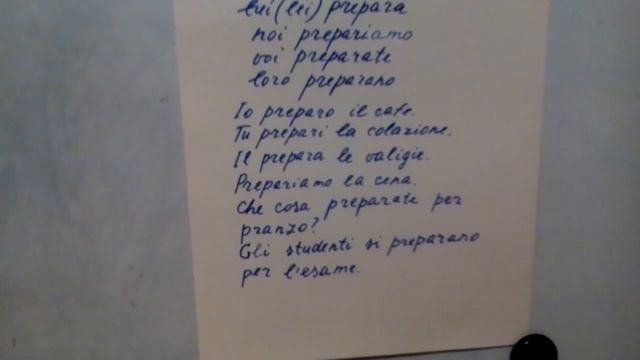 lui (lei) prepara
noi prepariamo
voi preparate
loro preparano
Io preparo il cafe.
Tu prepari la colazione.
Il prepara le valigie.
Prepariamo la cena.
Che cosa preparate per
pranzo?
Gli studenti si preparano
per l'esame.